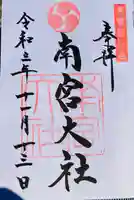 奉拝
南宮大社
令和二年十一月十三日